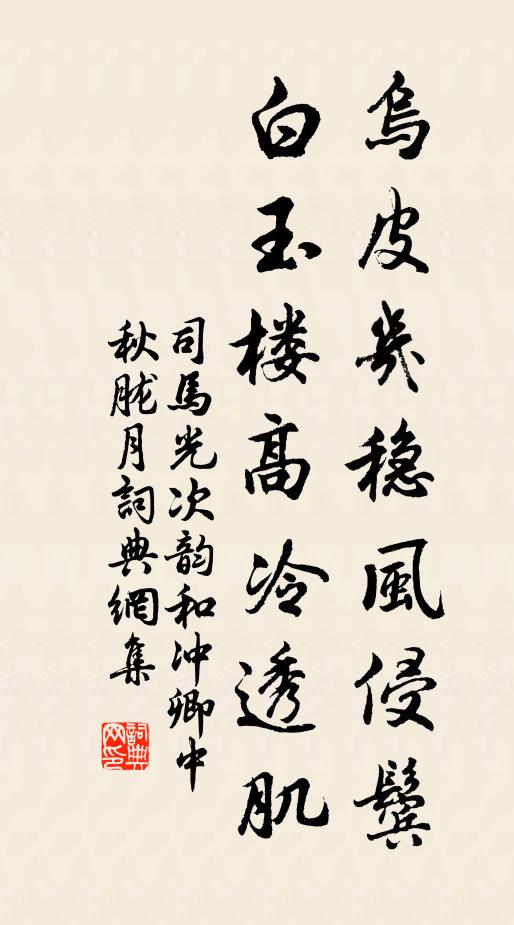 烏皮幾穩風侵鬢
白玉楼高冷透肌
司馬光次韵和沖卿中
秋胧月詞典網集
詞典
网印